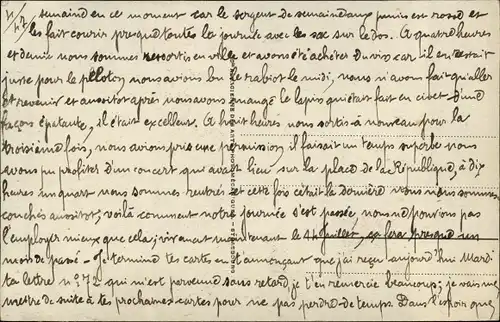 semaine en ce moment car le sergent de semaine aux punis est rosse et
les fait courir presque toute la journée avec les sac sur le dos. A quatre heures
et demie nous sommes ressortis en ville et avons été acheter du vin car il en restait
juste pour le peloton, nous avions bu le rabiot le midi, nous n'avons fait qu'aller
et revenir et aussitot après nous avons mangé le lapin qui était fait en civet d'une
façons épatante, il était excellent. A huit heures nous sortis à nouveau pour la
troisième fois, nous avions pris une permission, il faisait un temps superbe nous
avons pu profiter d'un concert qui avait lieu sur la place de la République, à dix
heures un quart nous sommes rentrés et cette fois c'était la dernière nous nous sommes
couchés aussitot, voilà comment notre journée s'est passée, nous ne pouvions pas
l'employer mieux que cela, vivement maintenant le 14 Juillet, ce sera presque un
mois de passé - Je termine tes cartes en t'annonçant que j'ai reçu aujourd'hui Mardi
ta lettre n° 72 qui m'est parvenue sans retard, je t'en remercie beaucoup; je vais me
mettre de suite à tes prochaines cartes pour ne pas perdre de temps. Dans l'espoir que